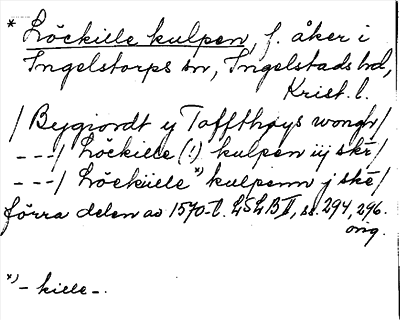 * Löckille kulpen, f. åker i
Ingelstorps sn, Ingelstads hd,
Krist. l.
/ Bygiordt y Toffthøys wongh /
---/ Löckille (!) kulpen iij skr /
---/ Löckiele *) kulpenn j ske /
förra delen av 1570-t. LSLB II, ss. 294, 296.
orig.
*) - kiele -.